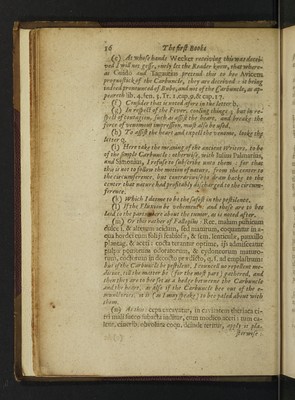 16 The first Booke
(e) At whose hands Wecker receiving this was decei-
ved I will not gesse, onely let the Reader know, that where-
as Guido and Tagautius pretend this to bee Avicens
prognostick of the Carbuncle, they are deceived: it being
indeed pronounced of Bubo, and not of the Carbuncle, as ap-
peareth lib. 4. fen. 3. Tr. 1. cap. 9. & cap. 17.
(f) Consider that is noted afore in the letter b.
(g) In respect of the Fever, cooling things; but in re-
spect of contagion, such as assist the heart, and breake the
force of venemous impression, must also be used.
(h) To assist the heart and expell the venome, looke the
letter
(i) Here take the meaning of the ancient Writers, to be
of the simple Carbuncle: otherwise, with Iulius Palmarius,
and I refuse to subscribe unto them; for that
this is not to follow the motion of nature, from the center to
the circumference, but contrariwise to goe backe to the
center that nature had profitably discharged to the circum-
ference.
(k) Which I deeme to be the safest in the pestilence.
(l) If the Fluxion be vehement: and these are to bee
laid to the parts where about the tumor, as is noted after.
(m) Or this rather of Fallopius: Rec. malum punicum
dulce, & alterum acidum, sed maturum, coquantur in a-
qua hordei cum
plantag. &
pulpae pomorum odoratorum, & cydoneorum
rum, coctorum in decocto praedicto, q. s. ad emplastrum:
but if the Carbuncle be pestilent, I counsel no repellent me-
dicine, till the matter be (for the most part) gathered, and
then they are to bee set as a hedge betweene the Carbuncle
and the heart, as also if the Carbuncle bee out of the e-
munctories, it is (as I may speake) to bee paled about with
them.
(n) As thus: cepa excavetur, in cavitatem theriaca ci-
tri misti succo subacta inditur, cum modico aceti: mox ca-
lente, cineribus operatur coqui, deinde teritur, apply it pla-
sterwise: